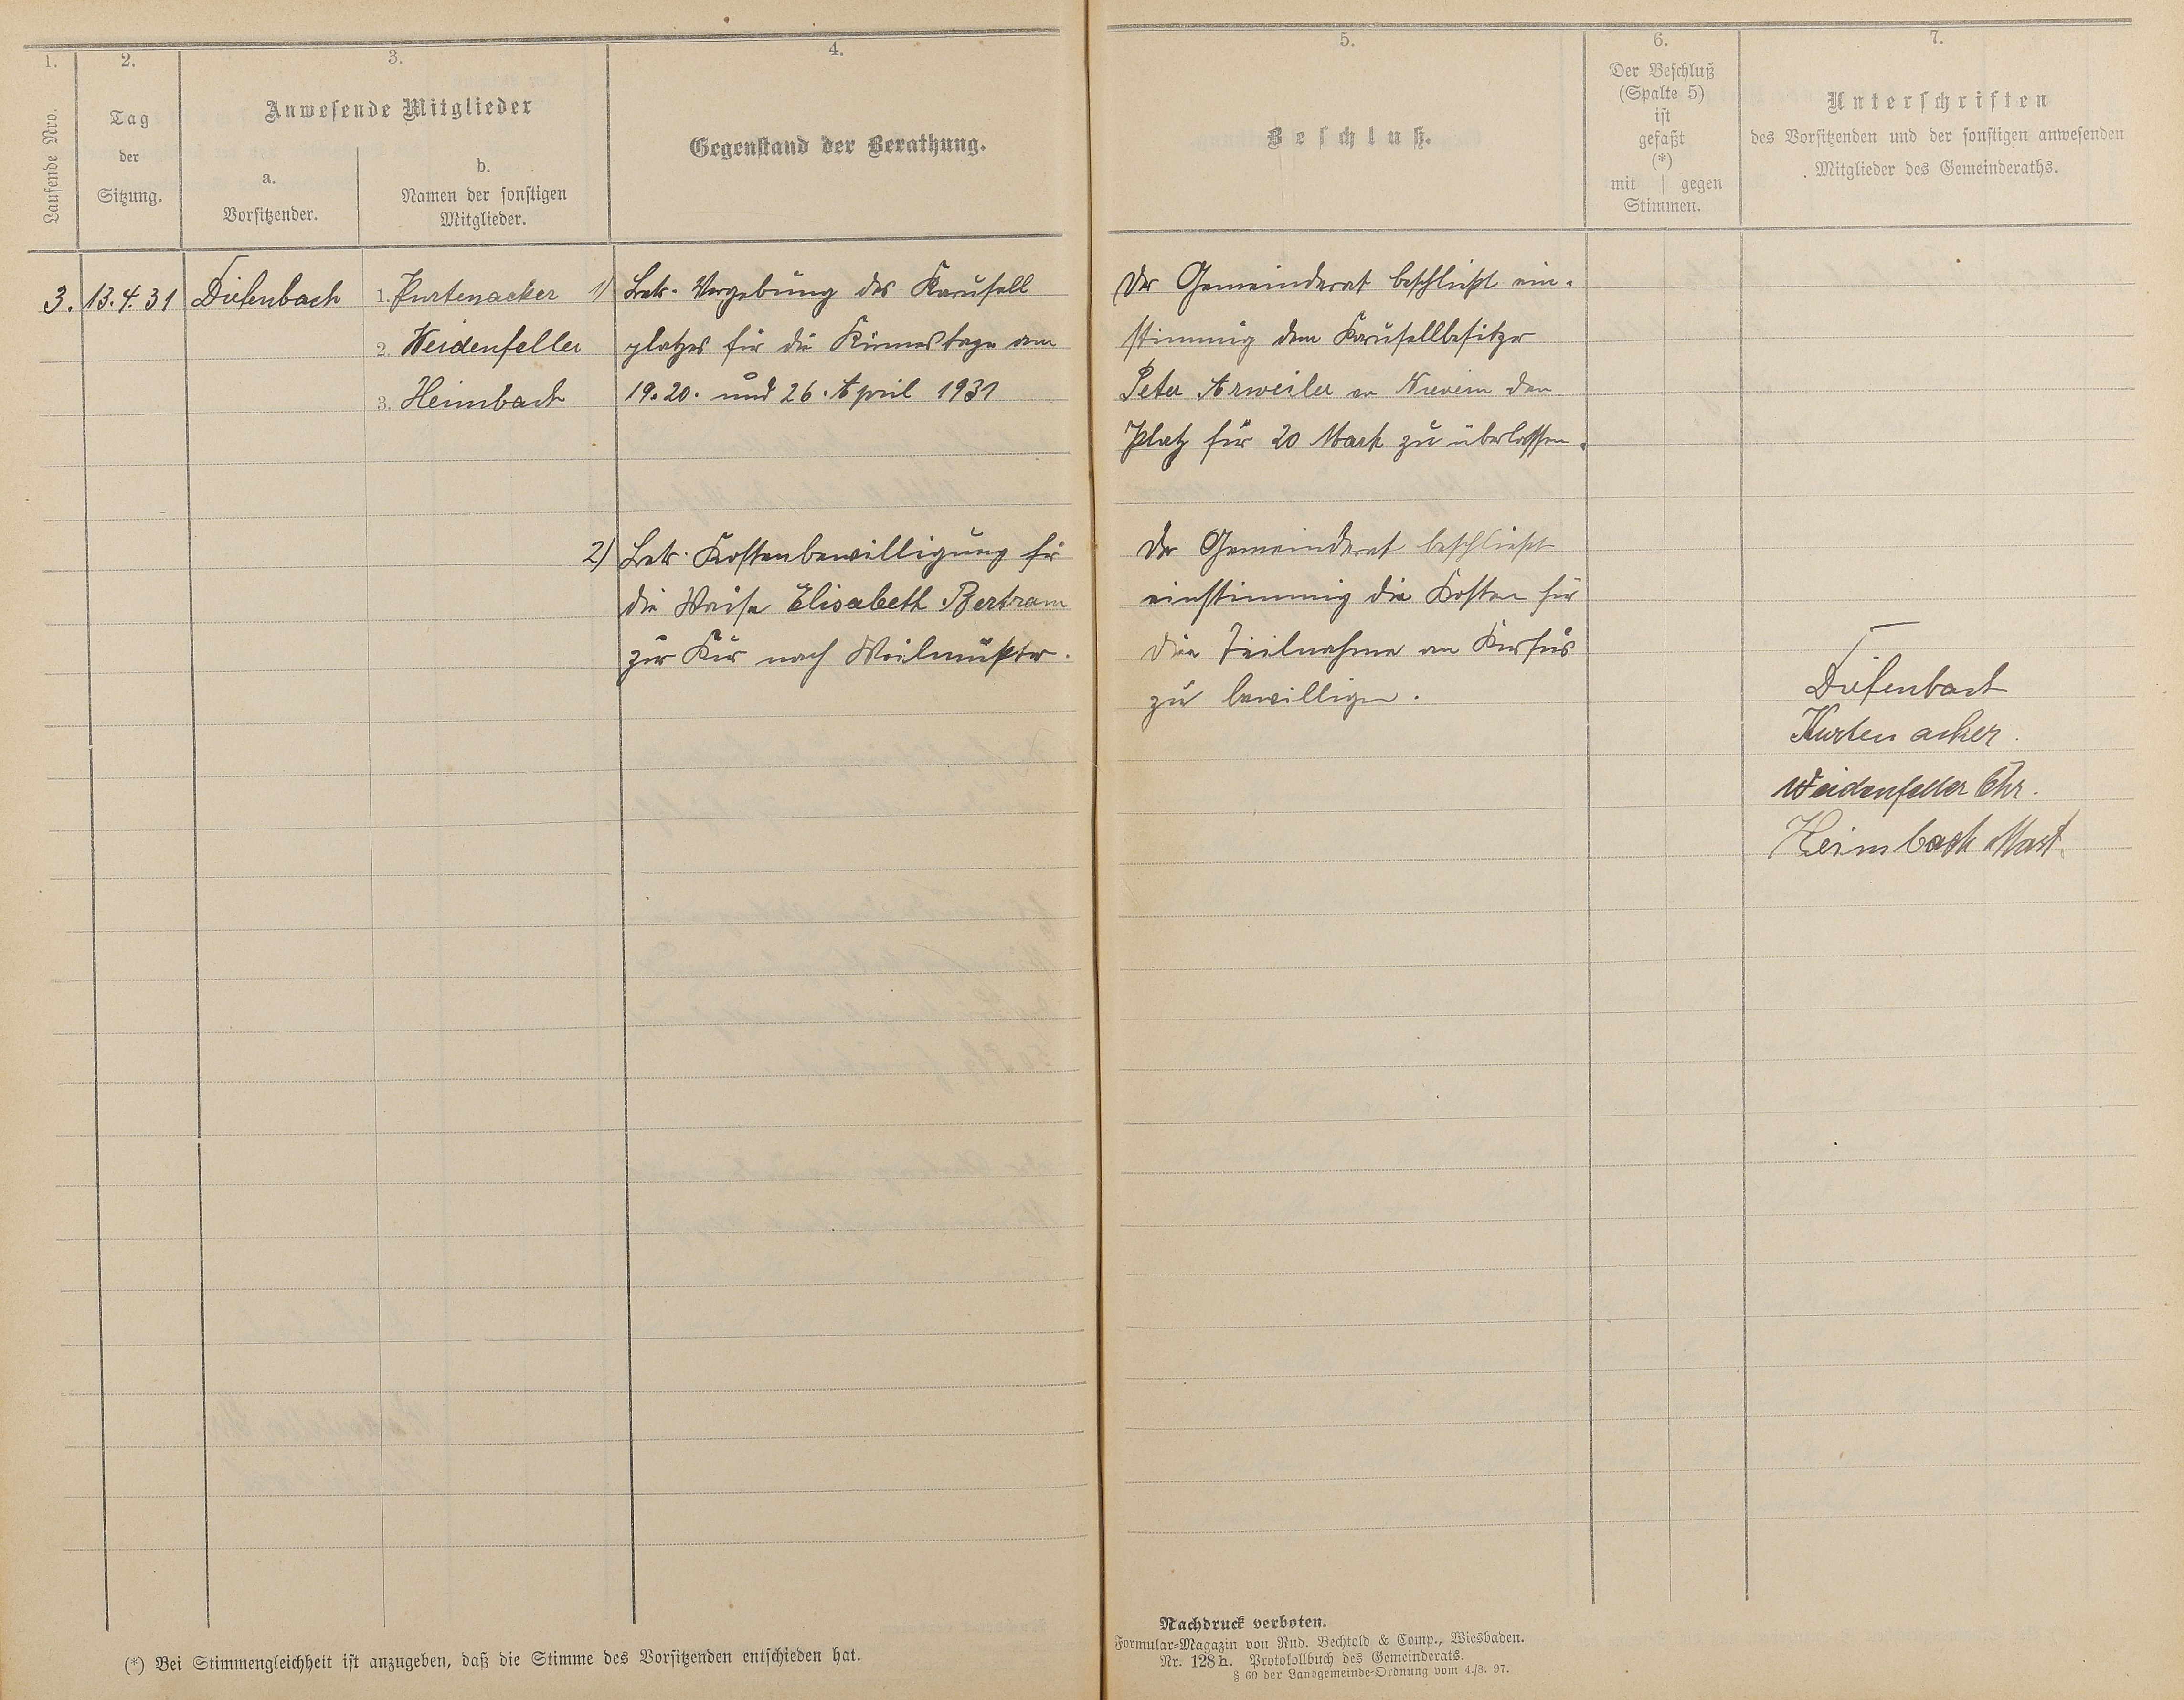 1.
2.
3.
4.
Laufende Nro.
Tag
der
Sitzung.
Anwesende Mitglieder
a.
Vorsitzender.
b.
Namen der sonstigen
Mitglieder.
Gegenstand der Berathung.
3. 13.4.31 Diefenbach 1. Kurtenacker 1) Betr. Vergebung des Karusell
2. Weidenfeller platzes für die Kirmestage am
3. Heimbach 19. 20. und 26. April 1931
2) Betr. Kostenbewilligung für
die Waise Elisabeth Bertram
zur Kur nach Weilmünster.
(*) Bei Stimmengleichheit ist anzugeben, daß die Stimme des Vorsitzenden entschieden hat.
5.
6.
7.
Beschluß.
Der Beschluß
(Spalte 5)
ist
gefaßt
(*)
mit | gegen
Stimmen.
Unterschriften
des Vorsitzenden und der sonstigen anwesenden
Mitglieder des Gemeinderaths.
Der Gemeinderat beschließt ein-
stimmig dem Karusellbesitzer
Peter Arweiler den
Platz für 20 Mark zu überlassen.
Der Gemeinderat beschließt
einstimmig die Kosten für
die Teilnahme an
zu bewilligen.
Diefenbach
Kurtenacker.
Weidenfeller Chr.
Heimbach
Nachdruck verboten.
Formular-Magazin von Rud. Bechtold & Comp., Wiesbaden.
Nr. 128h. Protokollbuch des Gemeinderats.
§ 60 der Landgemeinde-Ordnung vom 4./8. 97.